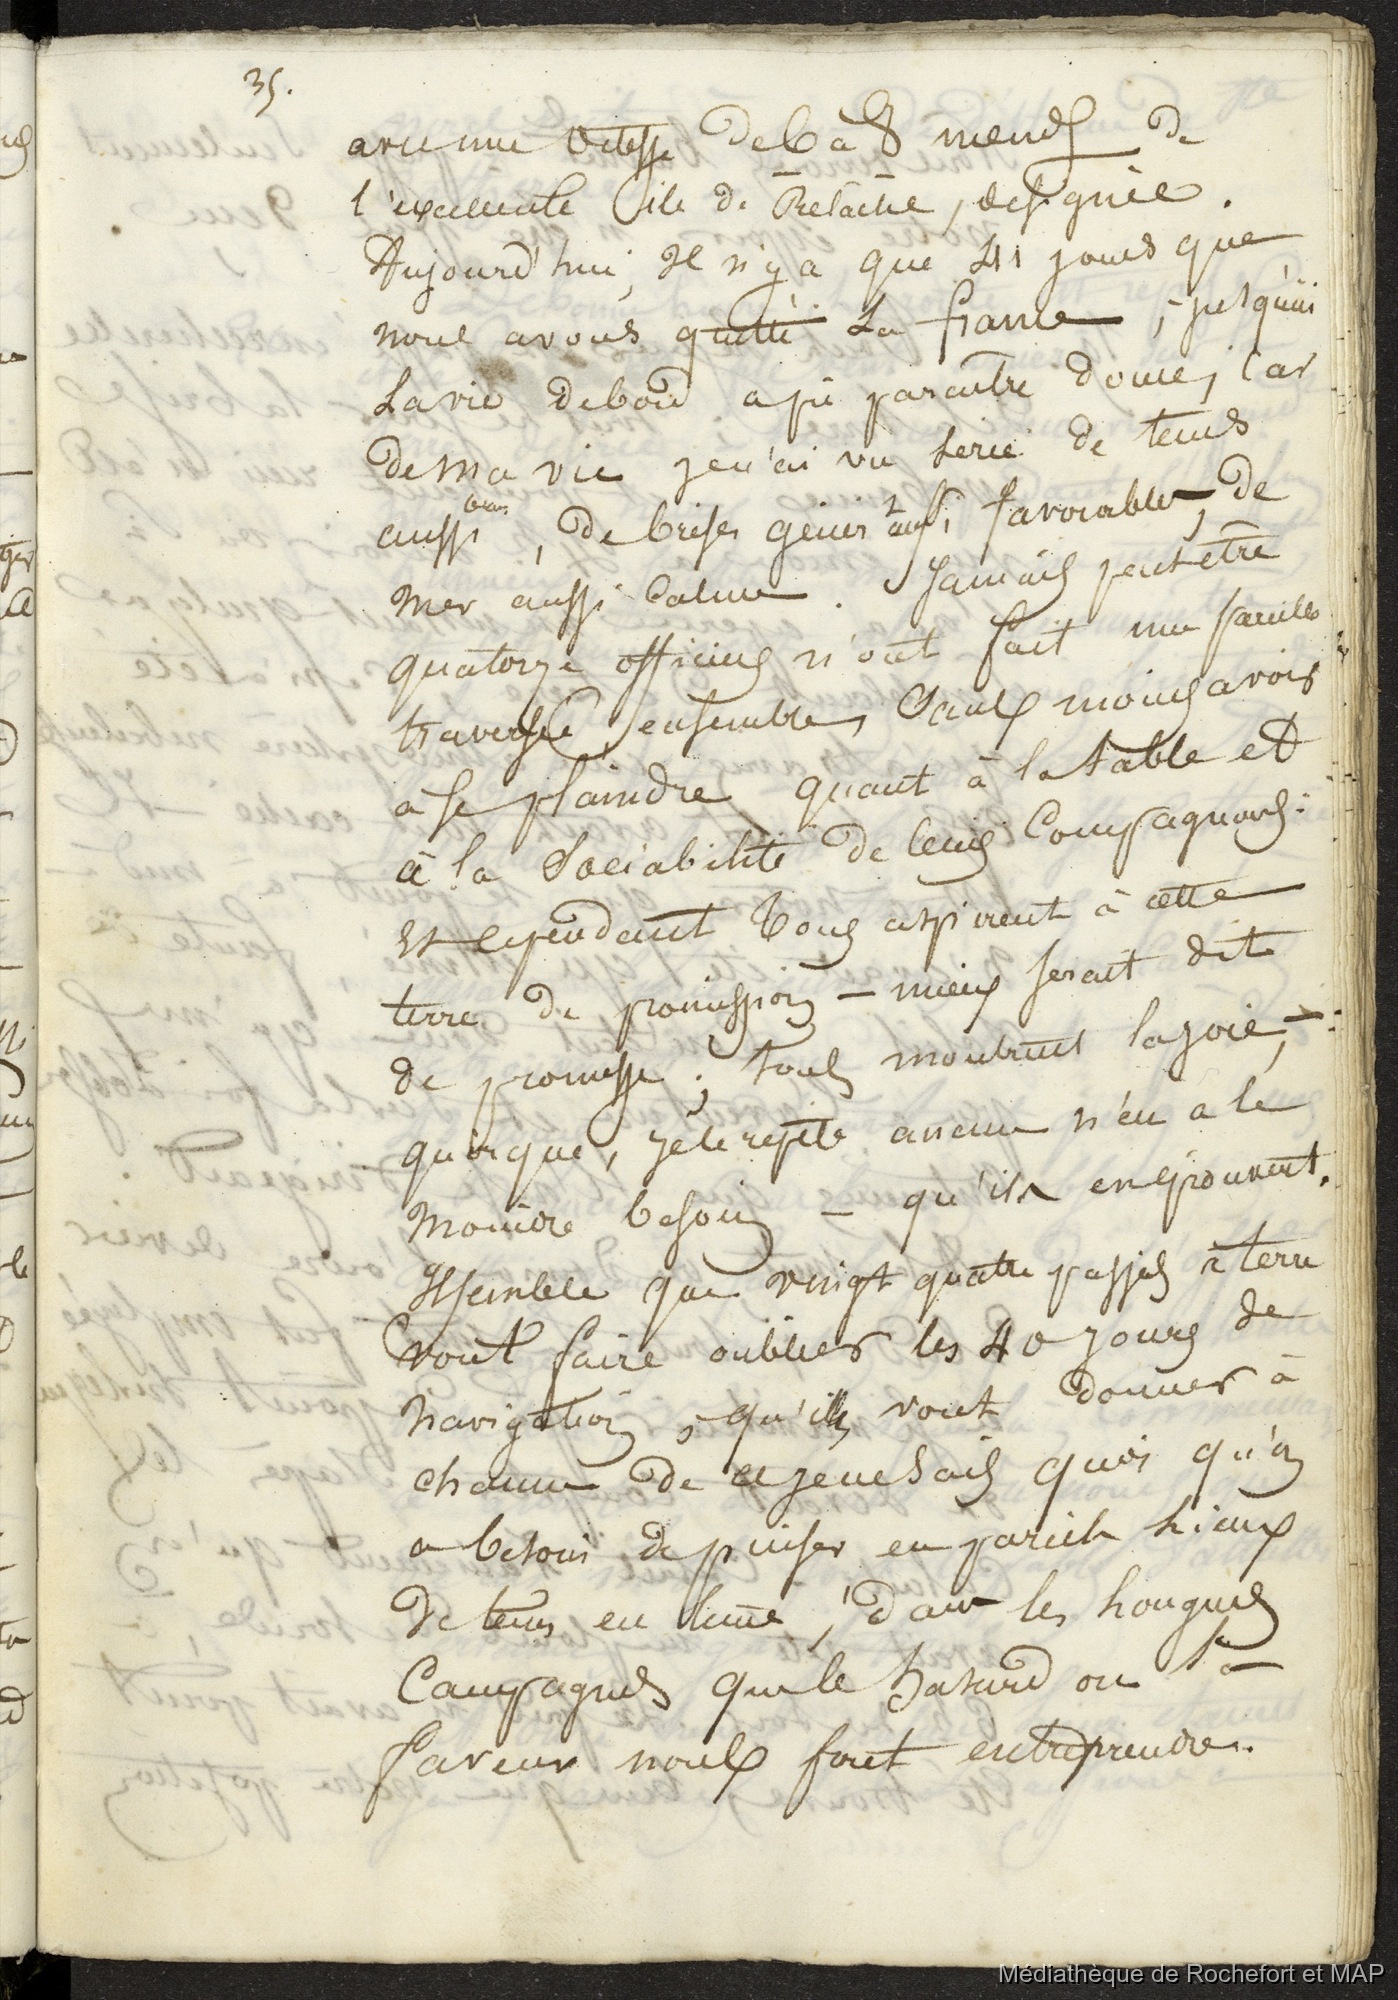 35.
avec une vitesse de 6 à 8 nœuds de
l'excellente ile de Relâche, designée.
Aujourd'hui, Il n'y a que 41 jours que
nous avons quitté La france, jusqu'ici
La vie debord a pû paraitre douce, car
de ma vie je n'ai vu serie de tems
aussi beau, de brises aussi favorables, de
Mer aussi Calme. Jamais peut etre
quatorze officiers n'ont fait une pareille
traversée ensemble, Sans moins avoir
a se plaindre quant à la table et
à la Sociabilité de leurs Compagnons:
Et cependant Tous aspirent à cette
terre de promission — mieux serait dit
de promesse; tous montrent la joie, —
quoique, je le repete aucun n'en a le
Moindre besoin — qu'ils en éprouvent.
Il semble que vingt quatre passés à terre
vont faire oublier les 40 jours de
Navigation, qu'ils vont donner à
chacun de ce je ne sais quoi qu'on
a besoin de puiser en pareils Lieux
De tems en tems, dans les Longues
Campagnes que le hasard ou la
faveur nous font entreprendre.
Médiathèque de Rochefort et MAP